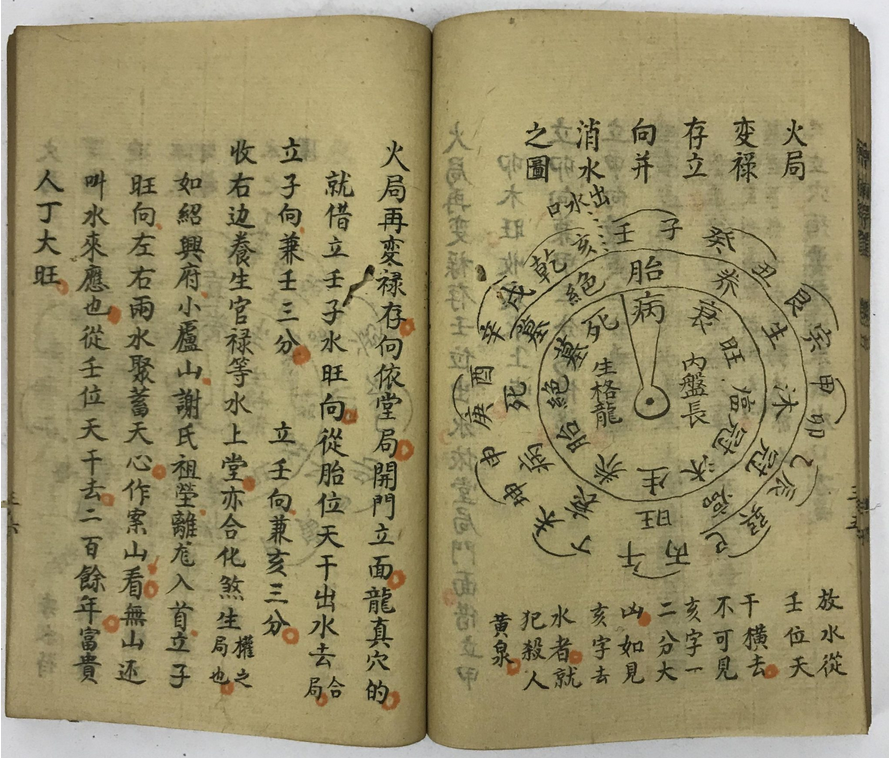 火局
変禄
存立
向并
消水
之圖
出水口
壬子
癸丑
艮
甲卯
乙辰
巽巳
丙午
丁未
坤申
庚酉
辛戌
乾亥
胎
养
生
沐
冠
旺
衰
病
死
墓
絕
病
衰
旺
冠
沐
生
养
胎
絕
墓
死
內盤長
生格龍
放水從
壬位天
干橫去
不可見
亥字一
二分大
凶如見
亥字去
水者就
犯殺人
黄泉
火局再変禄存向依堂局開門立面龍真穴的
就借立壬子水旺向從胎位天干出水去合局
立子向兼壬三分 立壬向兼亥三分
收右边養生官禄等水上堂亦合化煞生權之局也
如紹興府小廬山謝氏祖塋離龙入首立子
旺向左右兩水聚蓄天心作案山看無山还
叫水來應也從壬位天干去二百餘年富貴
人丁大旺